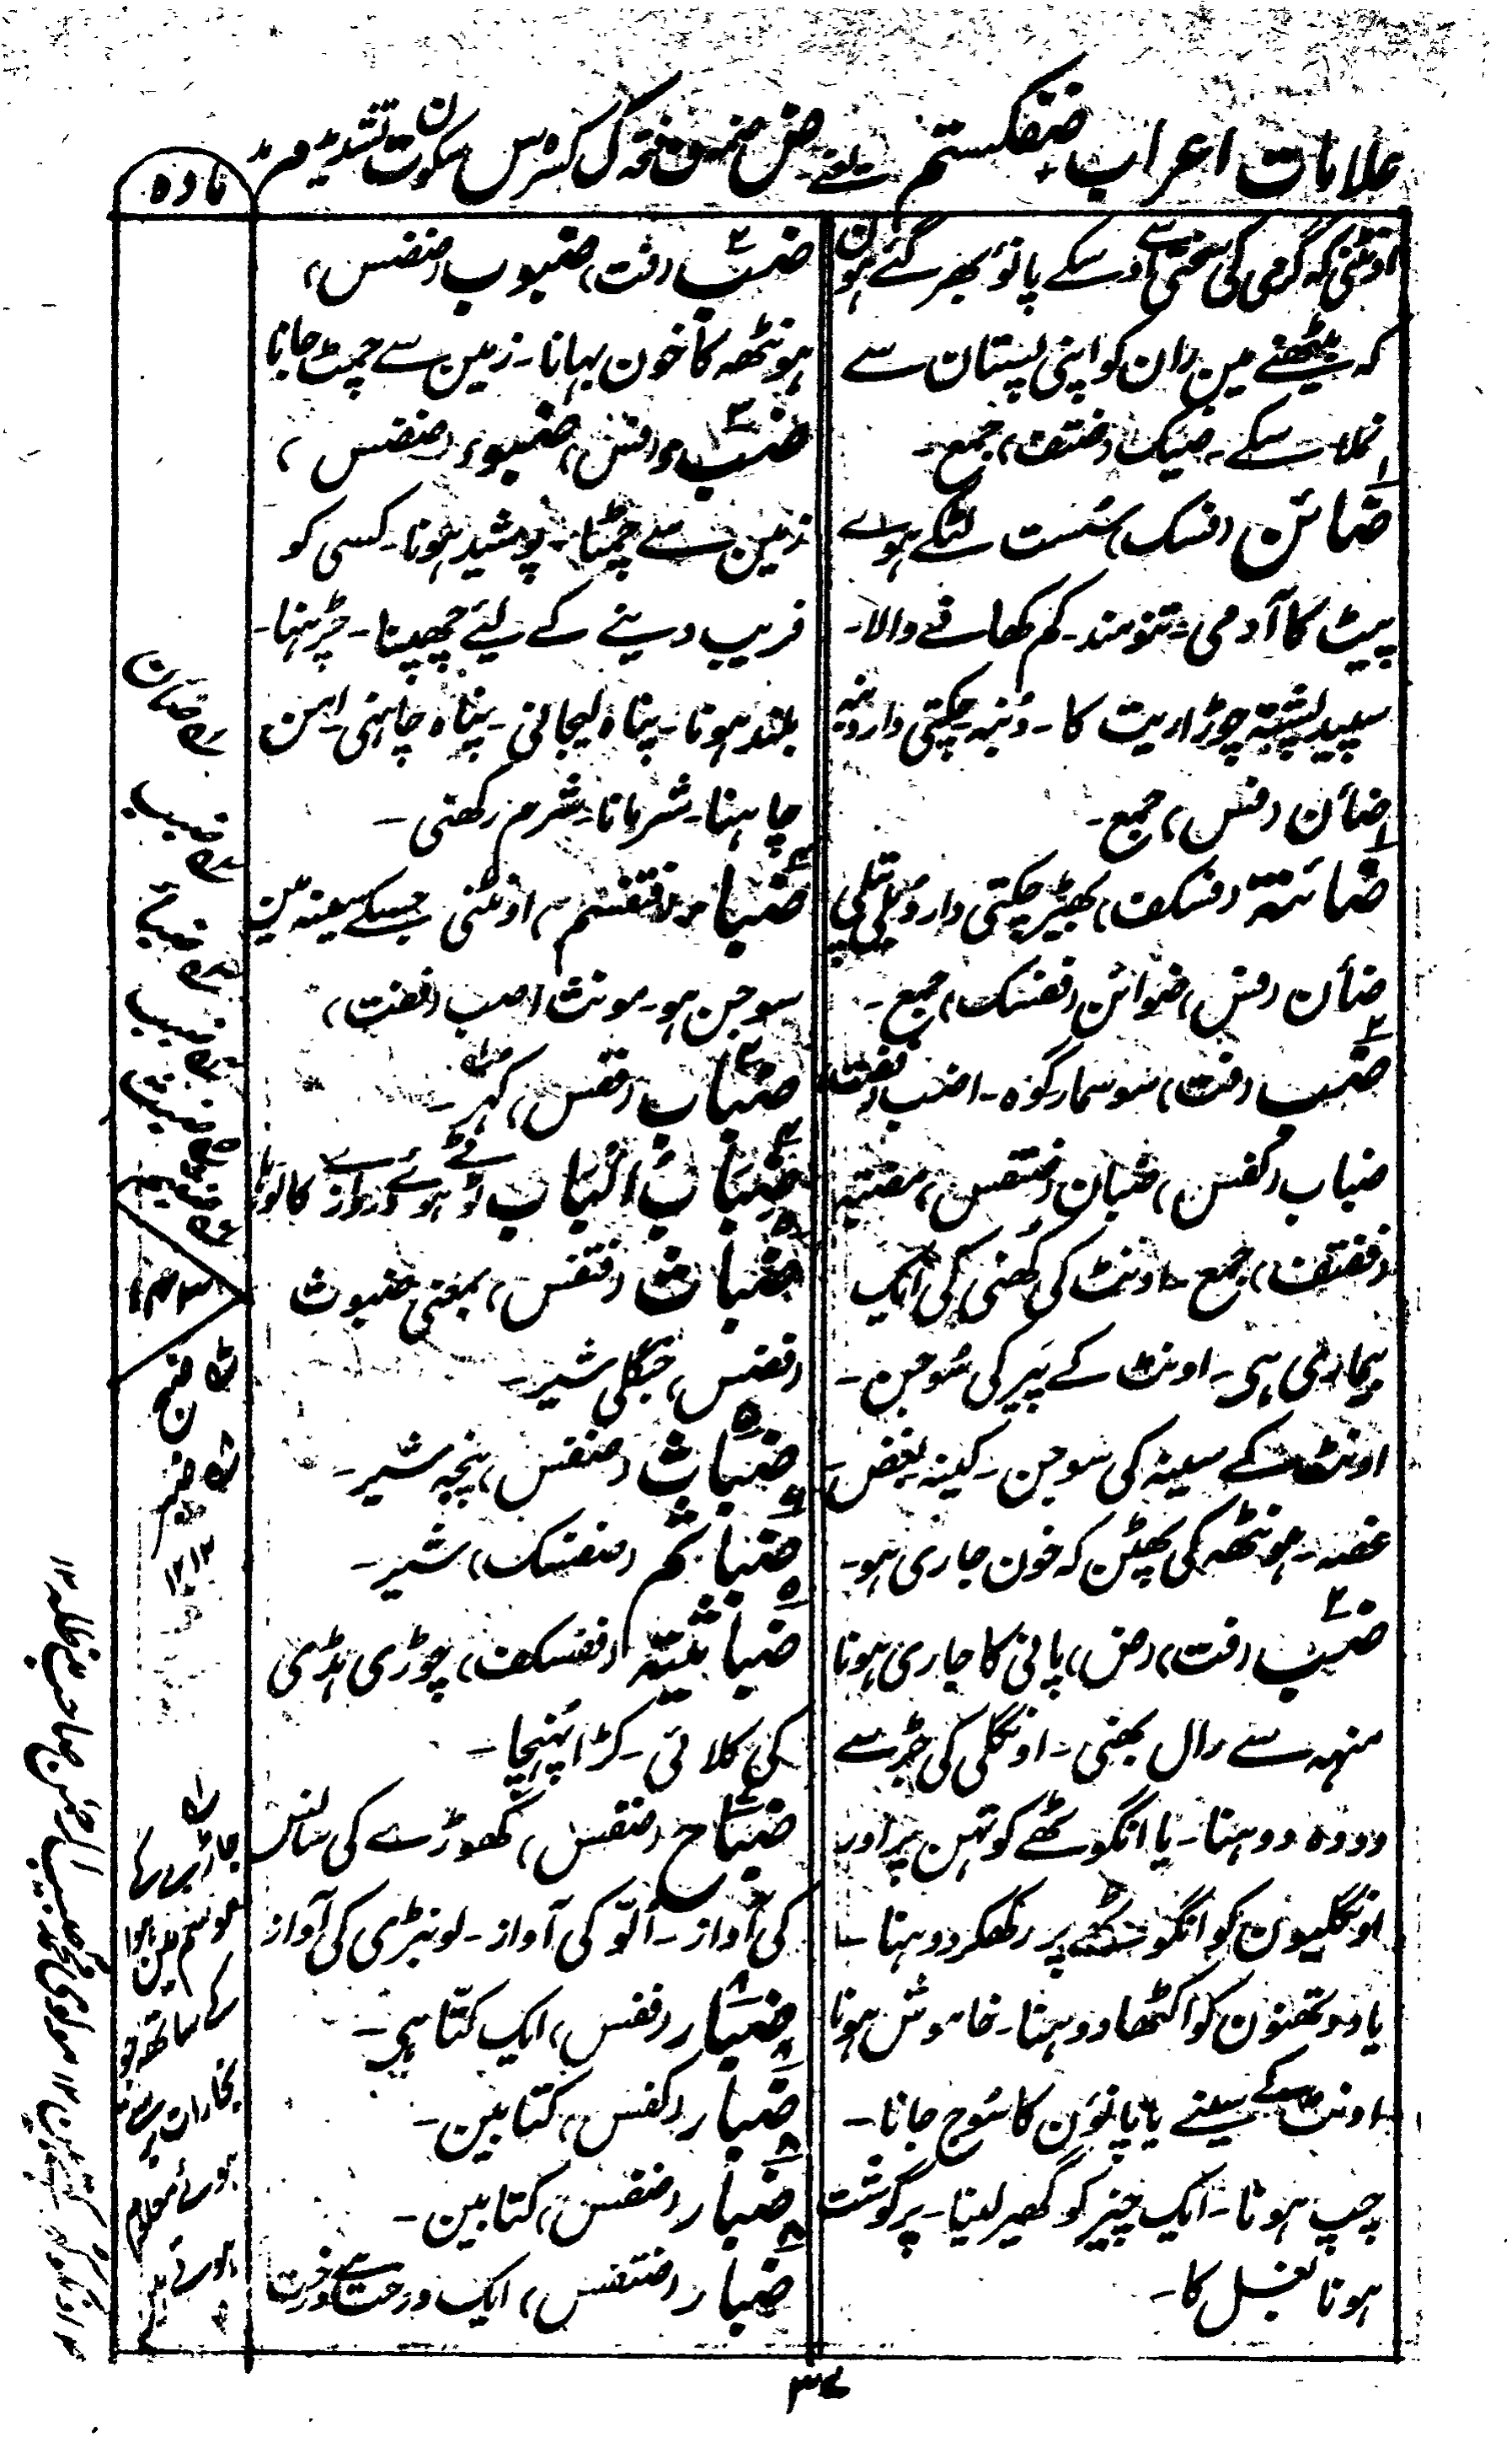 علامات اعراب ضفکستم یعنے ض ضمہ ف فتحہ ک کسرہ س سکون ت تشدید م مد
مادہ
اونٹنی کہ گرمی کی سختی سے اوسکے پانوٗ بھر گئے ہون
کہ بیٹھنے مین ران کو اپنی پستان سے
نملا سکے۔ ضیک (ضتف) جمع۔
ضائن (فسک) سُست لٹکے ہوے
پیٹ کا آدمی۔ تنومند۔ کم کھانے والا۔
سپید پشتہ چوڑا ریت کا۔ دُنبہ چکتی دار دنبہ
اضأن (فس) جمع۔
ضائنۃ (فسکف) بھیڑ چکتی دار دُنبلی پتلی
ضأن (فس) ضوائن (ففسک) جمع۔
ضبّ (فت) سوسمار گوہ۔ اضب (ففت)
ضباب (کفس) ضبان (ضتفس) مضبتہ
(ففتف) جمع۔ اونٹ کی کُھنی کی ایک
بیماری ہی۔ اونٹ کے پَیر کی سُوجن۔
اونٹ کے سینہ کی سوجن۔ کینہ بغض۔
غصہ۔ ہونٹھ کی پھٹن کہ خون جاری ہو۔
ضبّ (فت) (ض) پانی کا جاری ہونا
منہہ سے رال بھنی۔ اونگلی کی جڑ سے
دودہ دوہنا۔ یا انگوٹھے کو تہن پر اور
اونگلیون کو انگوٹھے پر رکھکر دوہنا۔
یا دو تھنون کو اکٹھا دوہنا۔ خاموش ہونا
اونٹ کے سینے یا پانوٗن کا سُوج جانا۔
چپ ہونا۔ ایک چیز کو گھیر لینا۔ پر گوشت
ہونا بغل کا۔
ضبّ (فت) ضبوب (ضضس)
ہونٹھ کا خون بہانا۔ زمین سے چمٹ جانا
ضبء (فس) ضبوء (ضضس)
زمین سے چمٹنا۔ پوشید ہونا۔ کسی کو
فریب دینے کے لیٔے چھپنا۔ چڑہنا۔
بلند ہونا۔ پناہ لیجانی۔ پناہ چاہنی۔ امن
چاہنا۔ شرمانا۔ شرم رکھنی۔
ضباء (فتفسم) اونٹنی جسکے سینہ مین
سوجن ہو۔ مونث اضب (ففت)
ضباب (ففس) کُہر۔
ضباب الباب ٹوٹے ہوئے دروازے کا لوہا
ضباث (فتفس) بمعنی ضبوث
(فضس) جنگلی شیر۔
ضباث (ضفس) پنجہ شیر۔
ضباثم (ضفسک) شیر۔
ضباثیۃ (ففسکف) چوڑی ہڈی
کی کلائی۔ کڑا پہنچا۔
ضباح (ضفس) گھوڑے کی سانس
کی آواز۔ اُلّو کی آواز۔ لونبڑی کی آواز
ضبار (ففس) ایک کتّا ہی۔
ضبار (کفس) کتابین۔
ضبار (ضفس) کتابین۔
ضبار (ضتفس) ایک درخت ہے درخت
ضان
ضبب
ضبء
ضبب
ضبث
ضبثم
ضبح
ضبر
۱۲
جاڑہر کے
موسم مین ہوا
کے ساتھ جو
بخارات برسے
ہوئے معلوم
ہوتے ہین
۳۷